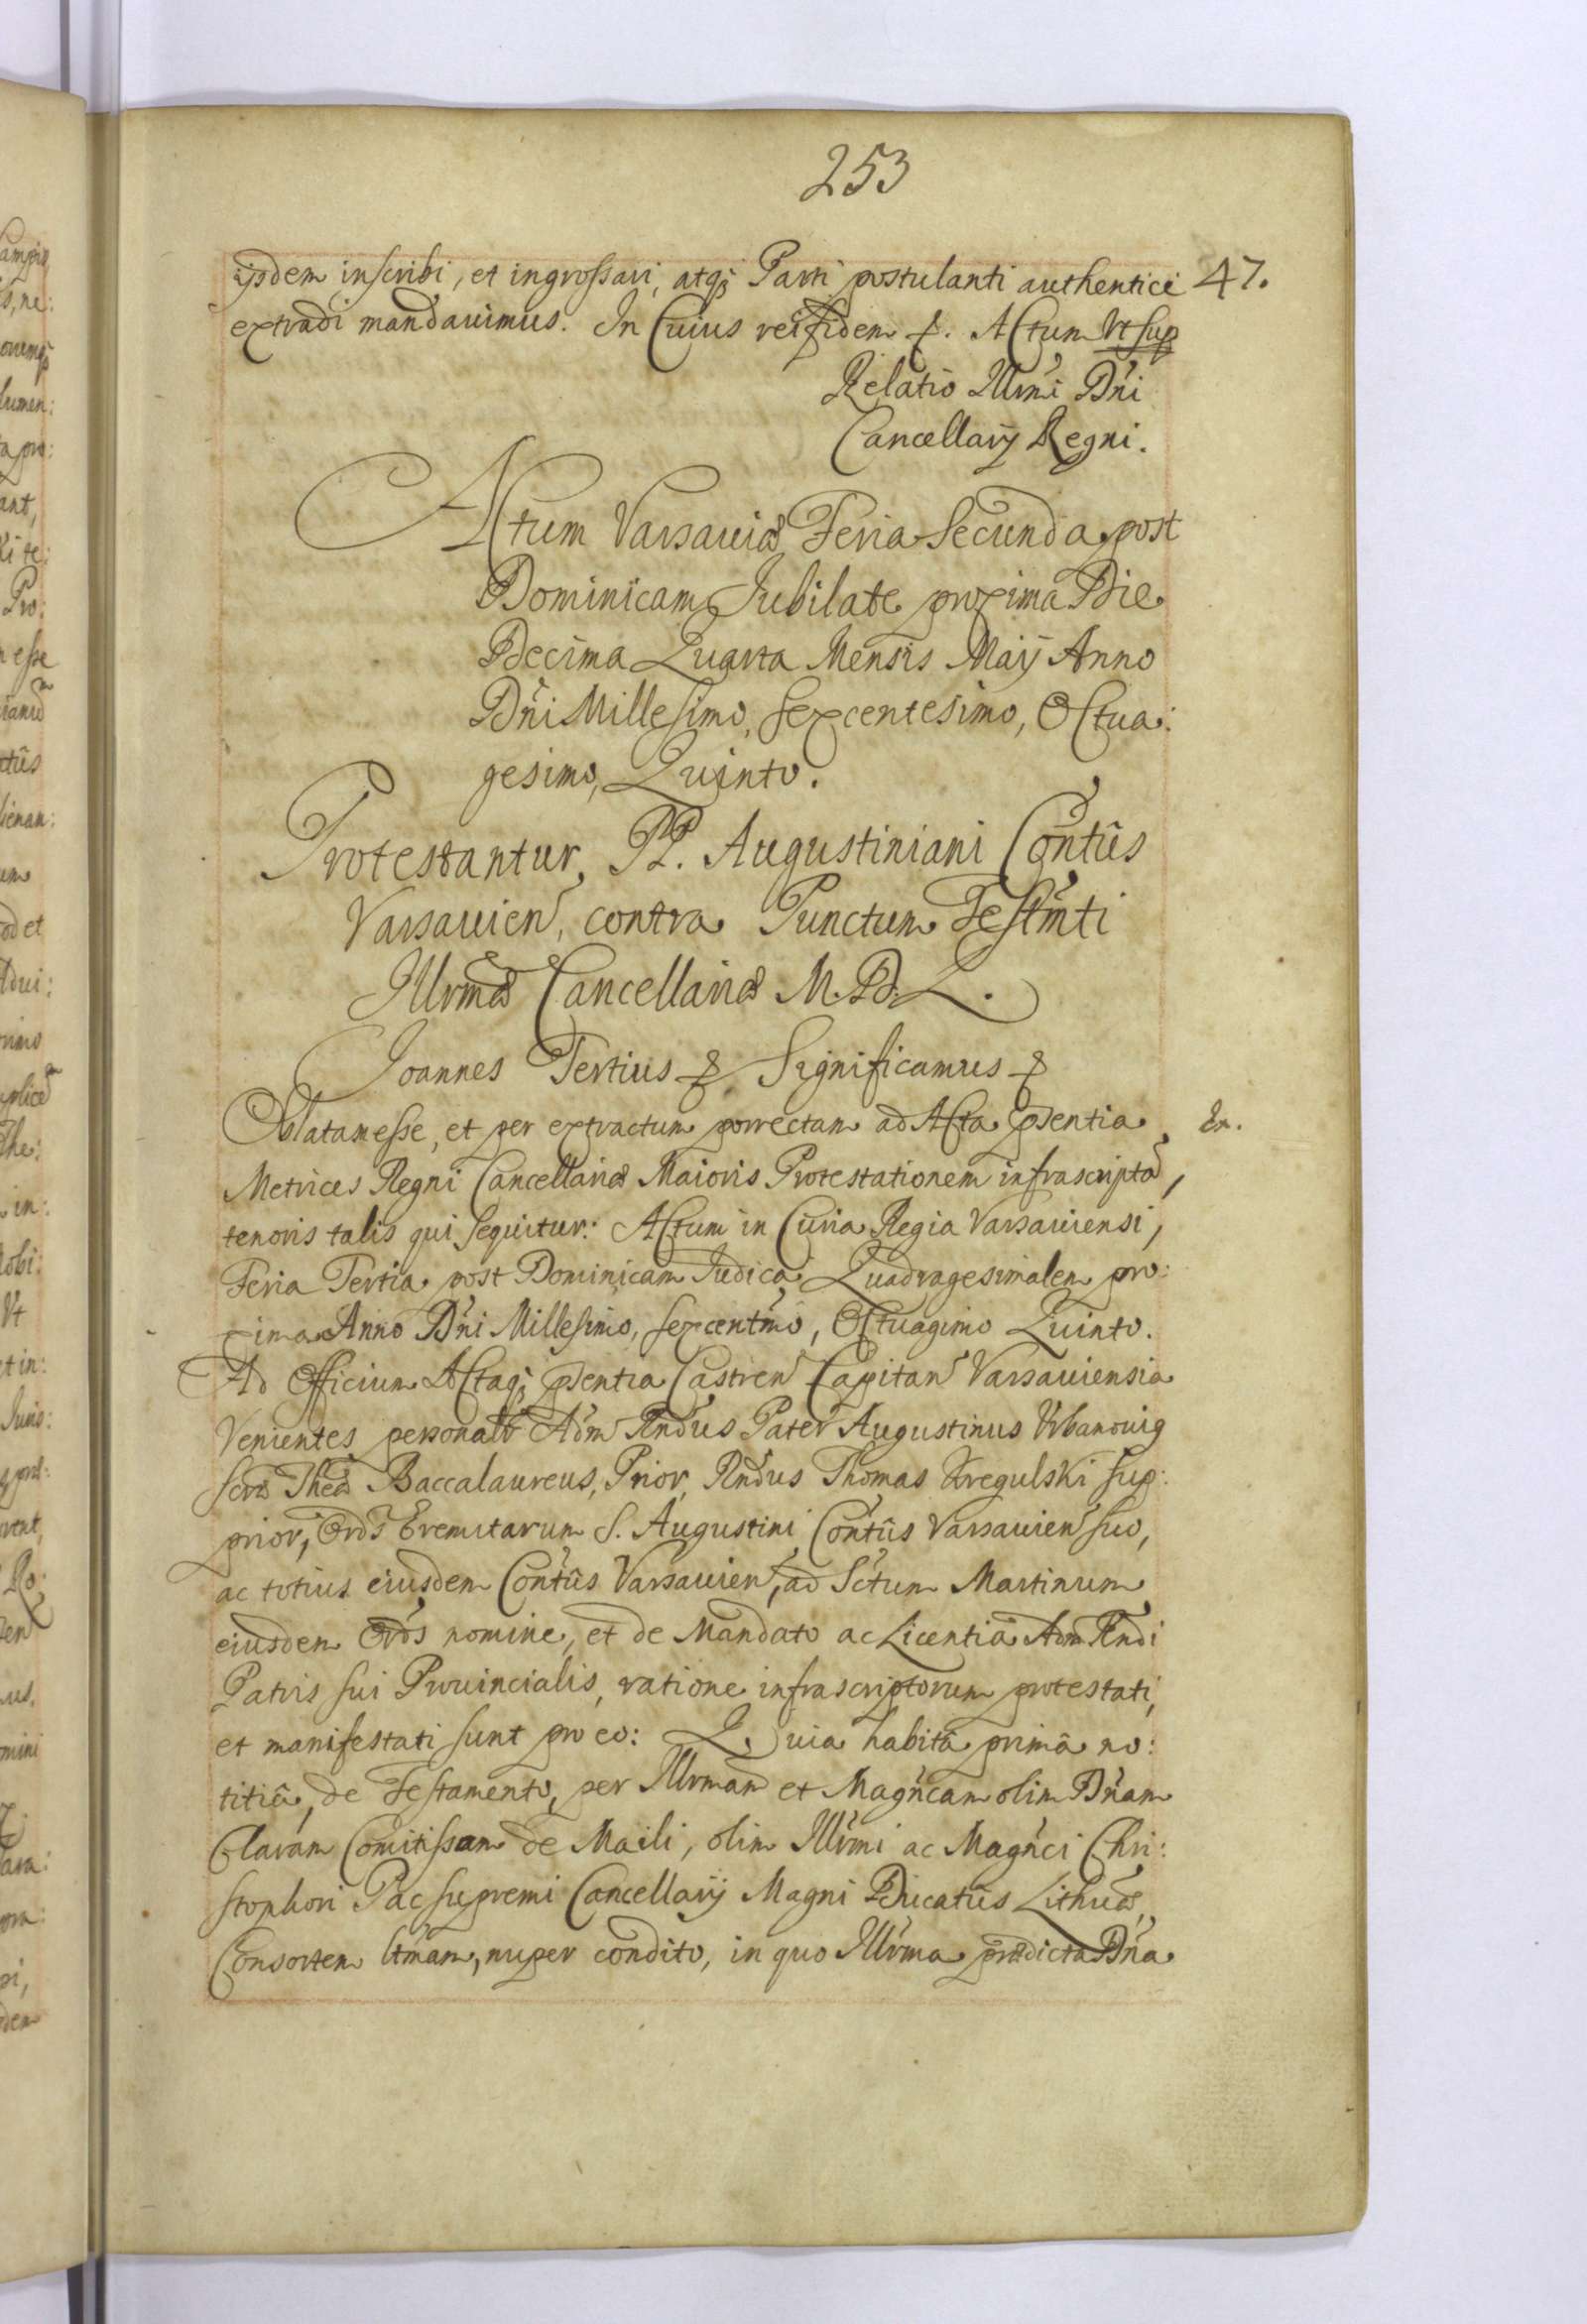 253
ijsdem inscribi, et ingrossari, atq; Parti postulanti authentice 47.
extradi mandauimus. In Cuius rei fidem &. Actum Vt sup
Relatio Illrmi Dni
Cancellarij Regni.
Actum Varsauiæ Feria Secunda post
Dominicam Jubilate proxima Die
Decima Quarta Mensis Maij Anno
Dñi Millesimo, Sexcentesimo, Octua:
gesimo, Quinto.
Protestantur PP. Augustiniani Contûs
Varsauien, contra Punctum Testmti
Illrmæ Cancellariæ M.D.L.
Joannes Tertius & Significamus &
Oblatam esse, et per extractum porrectam ad Acta pñsentia
Metrices Regni Cancellariæ Maioris Protestationem infrascriptã,
tenoris talis qui sequitur: Actum in Curia Regia Varsauiensi,
Feria Tertia post Dominicam Judica Quadragesimalem pro:
xima Anno Dñi Millesimo, sexcentmo, Octuagimo Quinto.
Ad Officium Actaq; pñsentia Castren Capitan Varsauiensia
Venientes personalr Adm Rndus Pater Augustinus Vrbanouig
Scræ Theæ Baccalaureus, Prior, Rndus Thomas Kregulski sup:
prior, Ords Eremitarum S. Augustini Contûs Varsauien suo,
ac totius eiusdem Contûs Varsauien, ad Sctum Martinum
eiusdem Ords nomine, et de Mandato ac Licentia Adm Rndi
Patris sui Prouincialis, ratione infrascriptorum protestati,
et manifestati sunt pro eo: Quia habitâ primâ no:
titiâ, de Testamento, per Illrmam et Magñcam olim Dñam
Claram Comitissam de Maili, olim Illrmi ac Magñci Chri:
stophori Pac supremi Cancellarij Magni Ducatûs Lithuæ,
Consortem ltmam, nuper condito, in quo Illrma prædicta Dña